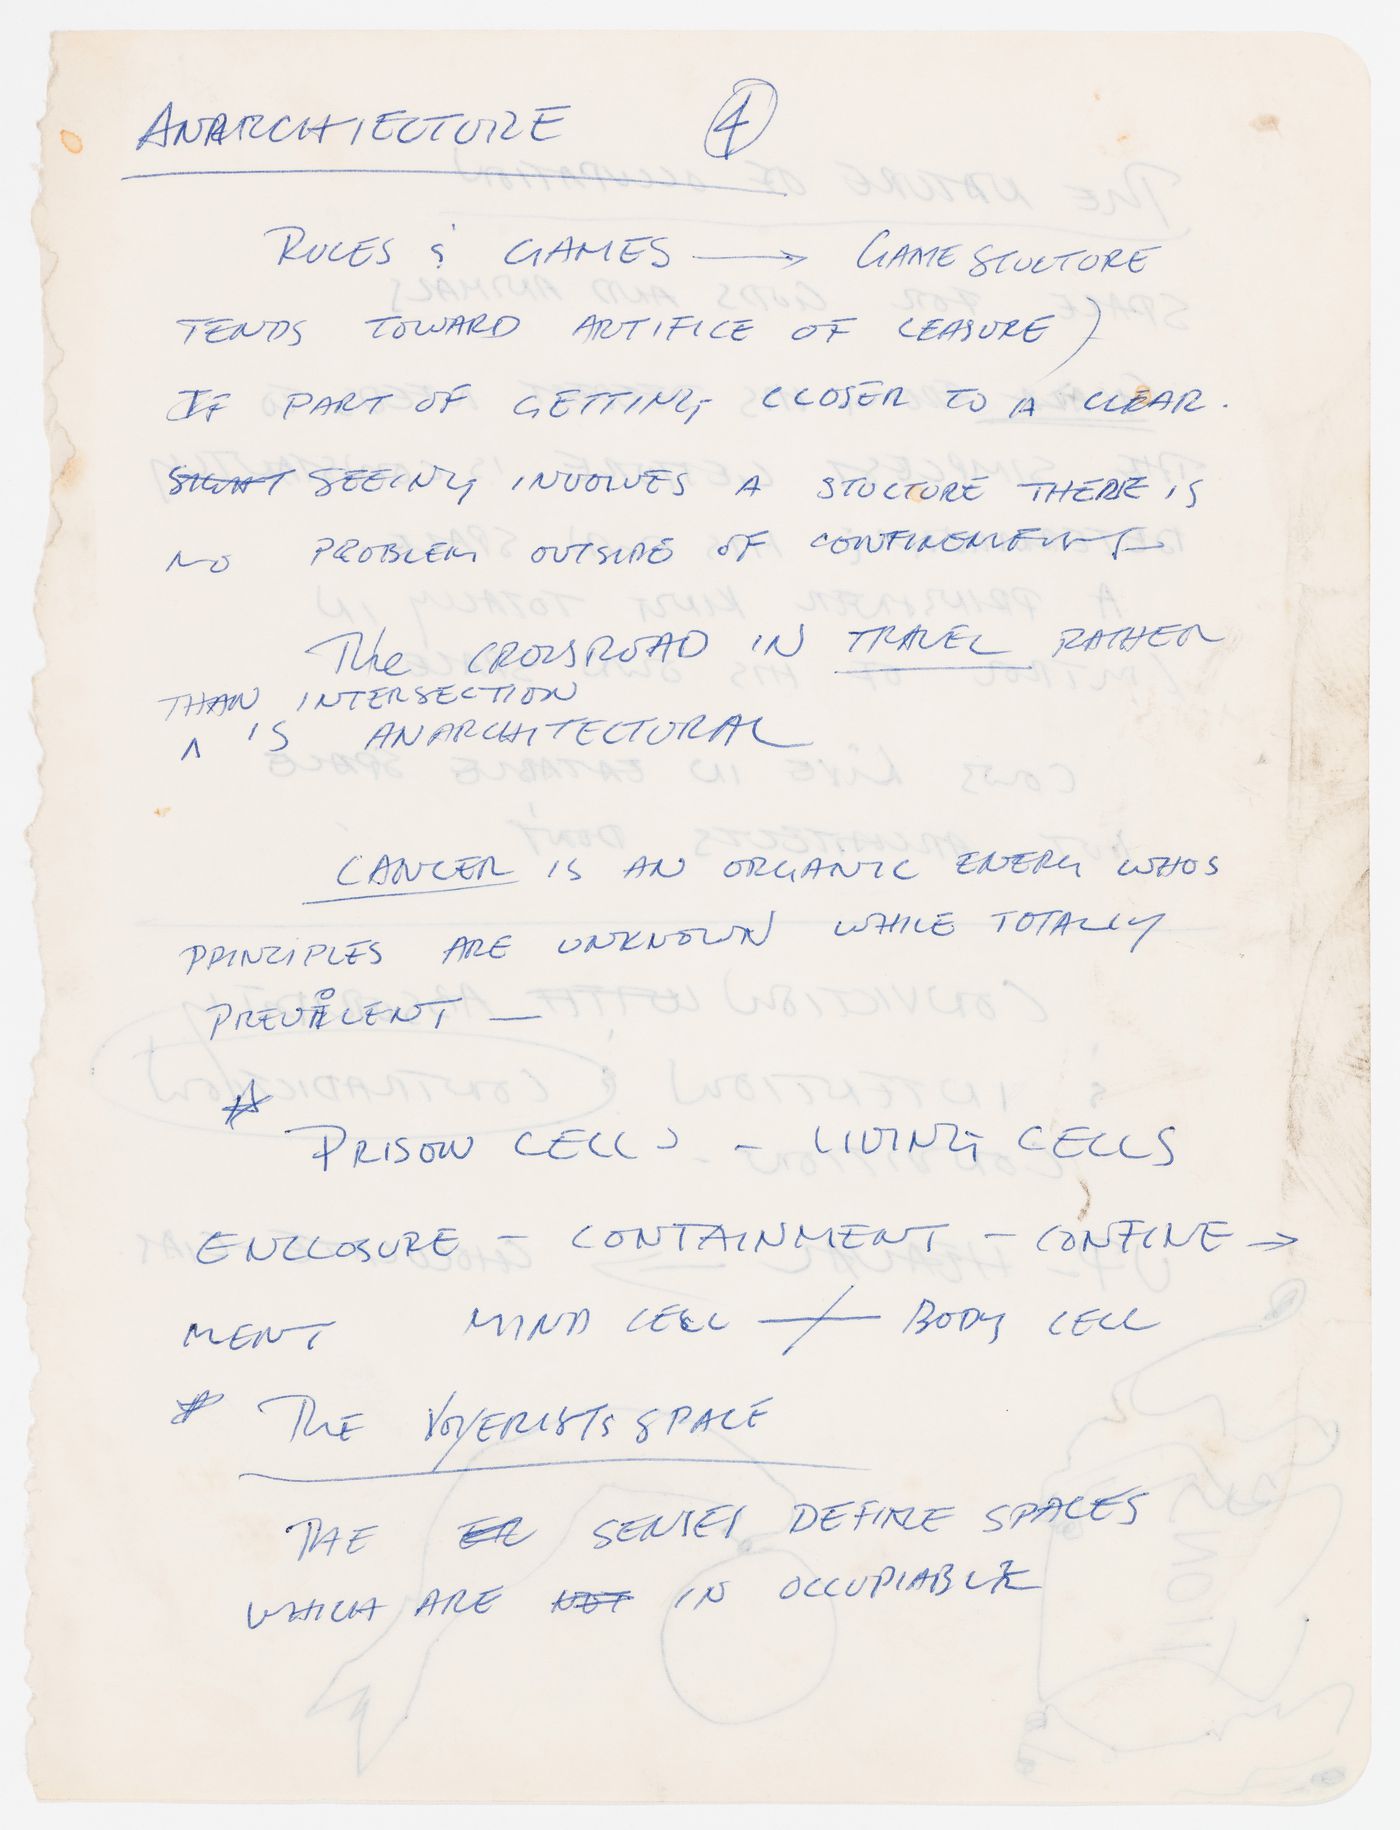 ANARCHIECTURE ④
RULES & GAMES → GAME STUCTURE
TENDS TOWARD ARTIFICE OF LEASURE)
IF PART OF GETTING CLOSER TO A CLEAR.
SIGHT SEEING INVOLVES A STUCTURE THERE IS
NO PROBLEM OUTSIDE OF CONFINEMENT
The CROSSROAD IN TRAVEL RATHER
THAN INTERSECTION
^ IS ANARCHITECTURAL
CANCER IS AN ORGANIC ENERGY WHOS
PRINZIPLES ARE UNKNOWN WHILE TOTALLY
PREVALENT —
* PRISON CELLS - LIVING CELLS
ENCLOSURE - CONTAINMENT - CONFINE →
MENT MIND CELL —/— BODY CELL
* THE VOYERISTS SPACE
THE ER SENSES DEFINE SPACES
WHICH ARE NOT IN OCCUPIABLE